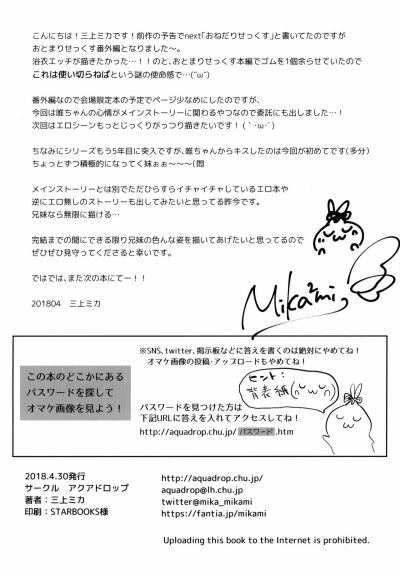 こんにちは！三上ミカです！前作の予告でnext「おねだりせっくす」と書いてたのですが
おとまりせっくす番外編となりました～。
浴衣エッチが描きたかった…！！のと、おとまりせっくす本編でゴムを1個余らせていたので
これは使い切らねばという謎の使命感で…(˘ω˘)
番外編なので会場限定本の予定でページ少なめにしたのですが、
今回は唯ちゃんの心情がメインストーリーに関わるやつなので委託にも出しました…！
次回はエロシーンもっとじっくりがっつり描きたいです！(｀･ω･´)
ちなみにシリーズもう5年目に突入ですが、唯ちゃんからキスしたのは今回が初めてです(多分)
ちょっとずつ積極的になってく妹ぉぉ～～～(悶
メインストーリーとは別でただひたすらイチャイチャしているエロ本や
逆にエロ無しのストーリーも出してみたいと思ってる昨今です。
兄妹なら無限に描ける…
完結までの間にできる限り兄妹の色んな姿を描いてあげたいと思ってるので
ぜひぜひ見守ってくださると幸いです。
ではでは、また次の本にてー！！
201804　三上ミカ
Mika²mi
この本のどこかにある
パスワードを探して
オマケ画像を見よう！
※SNS、twitter、掲示板などに答えを書くのは絶対にやめてね！
オマケ画像の投稿・アップロードもやめてね！
ヒント:
背表紙(˘ω˘)
パスワードを見つけた方は
下記URLに答えを入れてアクセスしてね！
http://aquadrop.chu.jp/パスワード.htm
2018.4.30発行
サークル　アクアドロップ
著者：三上ミカ
印刷：STARBOOKS様
http://aquadrop.chu.jp/
aquadrop@lh.chu.jp
twitter@mika_mikami
https://fantia.jp/mikami
Uploading this book to the Internet is prohibited.